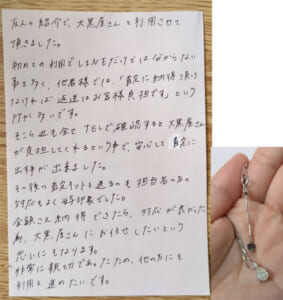 友人の紹介で、大黒屋さんを利用させて
頂きました。
初めての利用でLINEだけでは分からない
事も多く、他者様では、「査定に納得頂け
なければ返送はお客様負担です」という
所が多いです。
そこら辺も全てTELで確認すると大黒屋さん
が負担してくれるという事で、安心して査定に
出す事が出来ました。
その後の査定キットを送るのも担当者の方の
対応もよく好印象でした。
金額さえ納得できたら、対応が良かった
為、大黒屋さんにお任せしたいという
思いにもなります。
非常に親切であったため、他の方にも
利用を進めたいです。